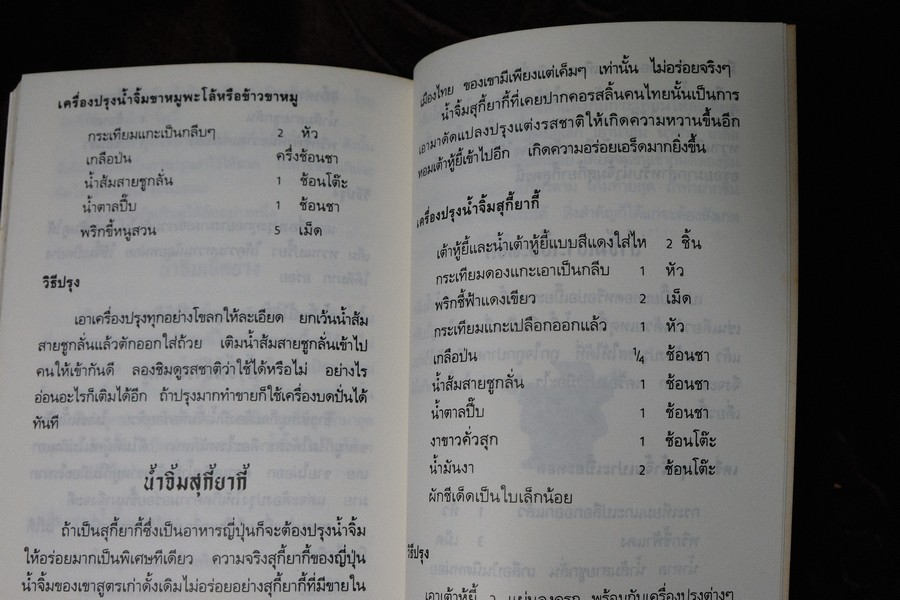 เครื่องปรุงน้ำจิ้มขาหมูพะโล้หรือข้าวขาหมู
กระเทียมแกะเป็นกลีบๆ 2 หัว
เกลือป่น ครึ่งช้อนชา
น้ำส้มสายชูกลั่น 1 ช้อนโต๊ะ
น้ำตาลปี๊บ 1 ช้อนชา
พริกขี้หนูสวน 5 เม็ด
วิธีปรุง
เอาเครื่องปรุงทุกอย่างโขลกให้ละเอียด ยกเว้นน้ำส้ม
สายชูกลั่นแล้วตักออกใส่ถ้วย เติมน้ำส้มสายชูกลั่นเข้าไป
คนให้เข้ากันดี ลองชิมดูรสชาติว่าใช้ได้หรือไม่ อย่างไร
อ่อนอะไรก็เติมได้อีก ถ้าปรุงมากทำขายก็ใช้เครื่องบดปั่นได้
ทันที
น้ำจิ้มสุกี้ยากี้
ถ้าเป็นสุกี้ยากี้ซึ่งเป็นอาหารญี่ปุ่นก็จะต้องปรุงน้ำจิ้ม
ให้อร่อยมากเป็นพิเศษทีเดียว ความจริงสุกี้ยากี้ของญี่ปุ่น
น้ำจิ้มของเขาสูตรเก่าดั้งเดิมไม่อร่อยอย่างสุกี้ยากี้ที่มีขายใน
เมืองไทย ของเขามีเพียงแต่เค็มๆ เท่านั้น ไม่อร่อยจริงๆ
น้ำจิ้มสุกี้ยากี้ที่เคยปากคอรสลิ้นคนไทยนั้นเป็นการ
เอามาดัดแปลงปรุงแต่งรสชาติให้เกิดความหวานขึ้นอีก
หอมเต้าหู้ยี้เข้าไปอีก เกิดความอร่อยเอร็ดมากยิ่งขึ้น
เครื่องปรุงน้ำจิ้มสุกี้ยากี้
เต้าหู้ยี้และน้ำเต้าหู้ยี้แบบสีแดงใส่ไห 2 ชิ้น
กระเทียมดองแกะเอาเป็นกลีบ 1 หัว
พริกชี้ฟ้าแดงเขียว 2 เม็ด
กระเทียมแกะเปลือกออกแล้ว 1 หัว
เกลือป่น 1/4 ช้อนชา
น้ำส้มสายชูกลั่น 1 ช้อนชา
น้ำตาลปี๊บ 1 ช้อนชา
งาขาวคั่วสุก 1 ช้อนโต๊ะ
น้ำมันงา 2 ช้อนโต๊ะ
ผักชีเด็ดเป็นใบเล็กน้อย
วิธีปรุง
เอาเต้าหู้ยี้ 2 พร้อมกับเครื่องปรุงต่างๆ